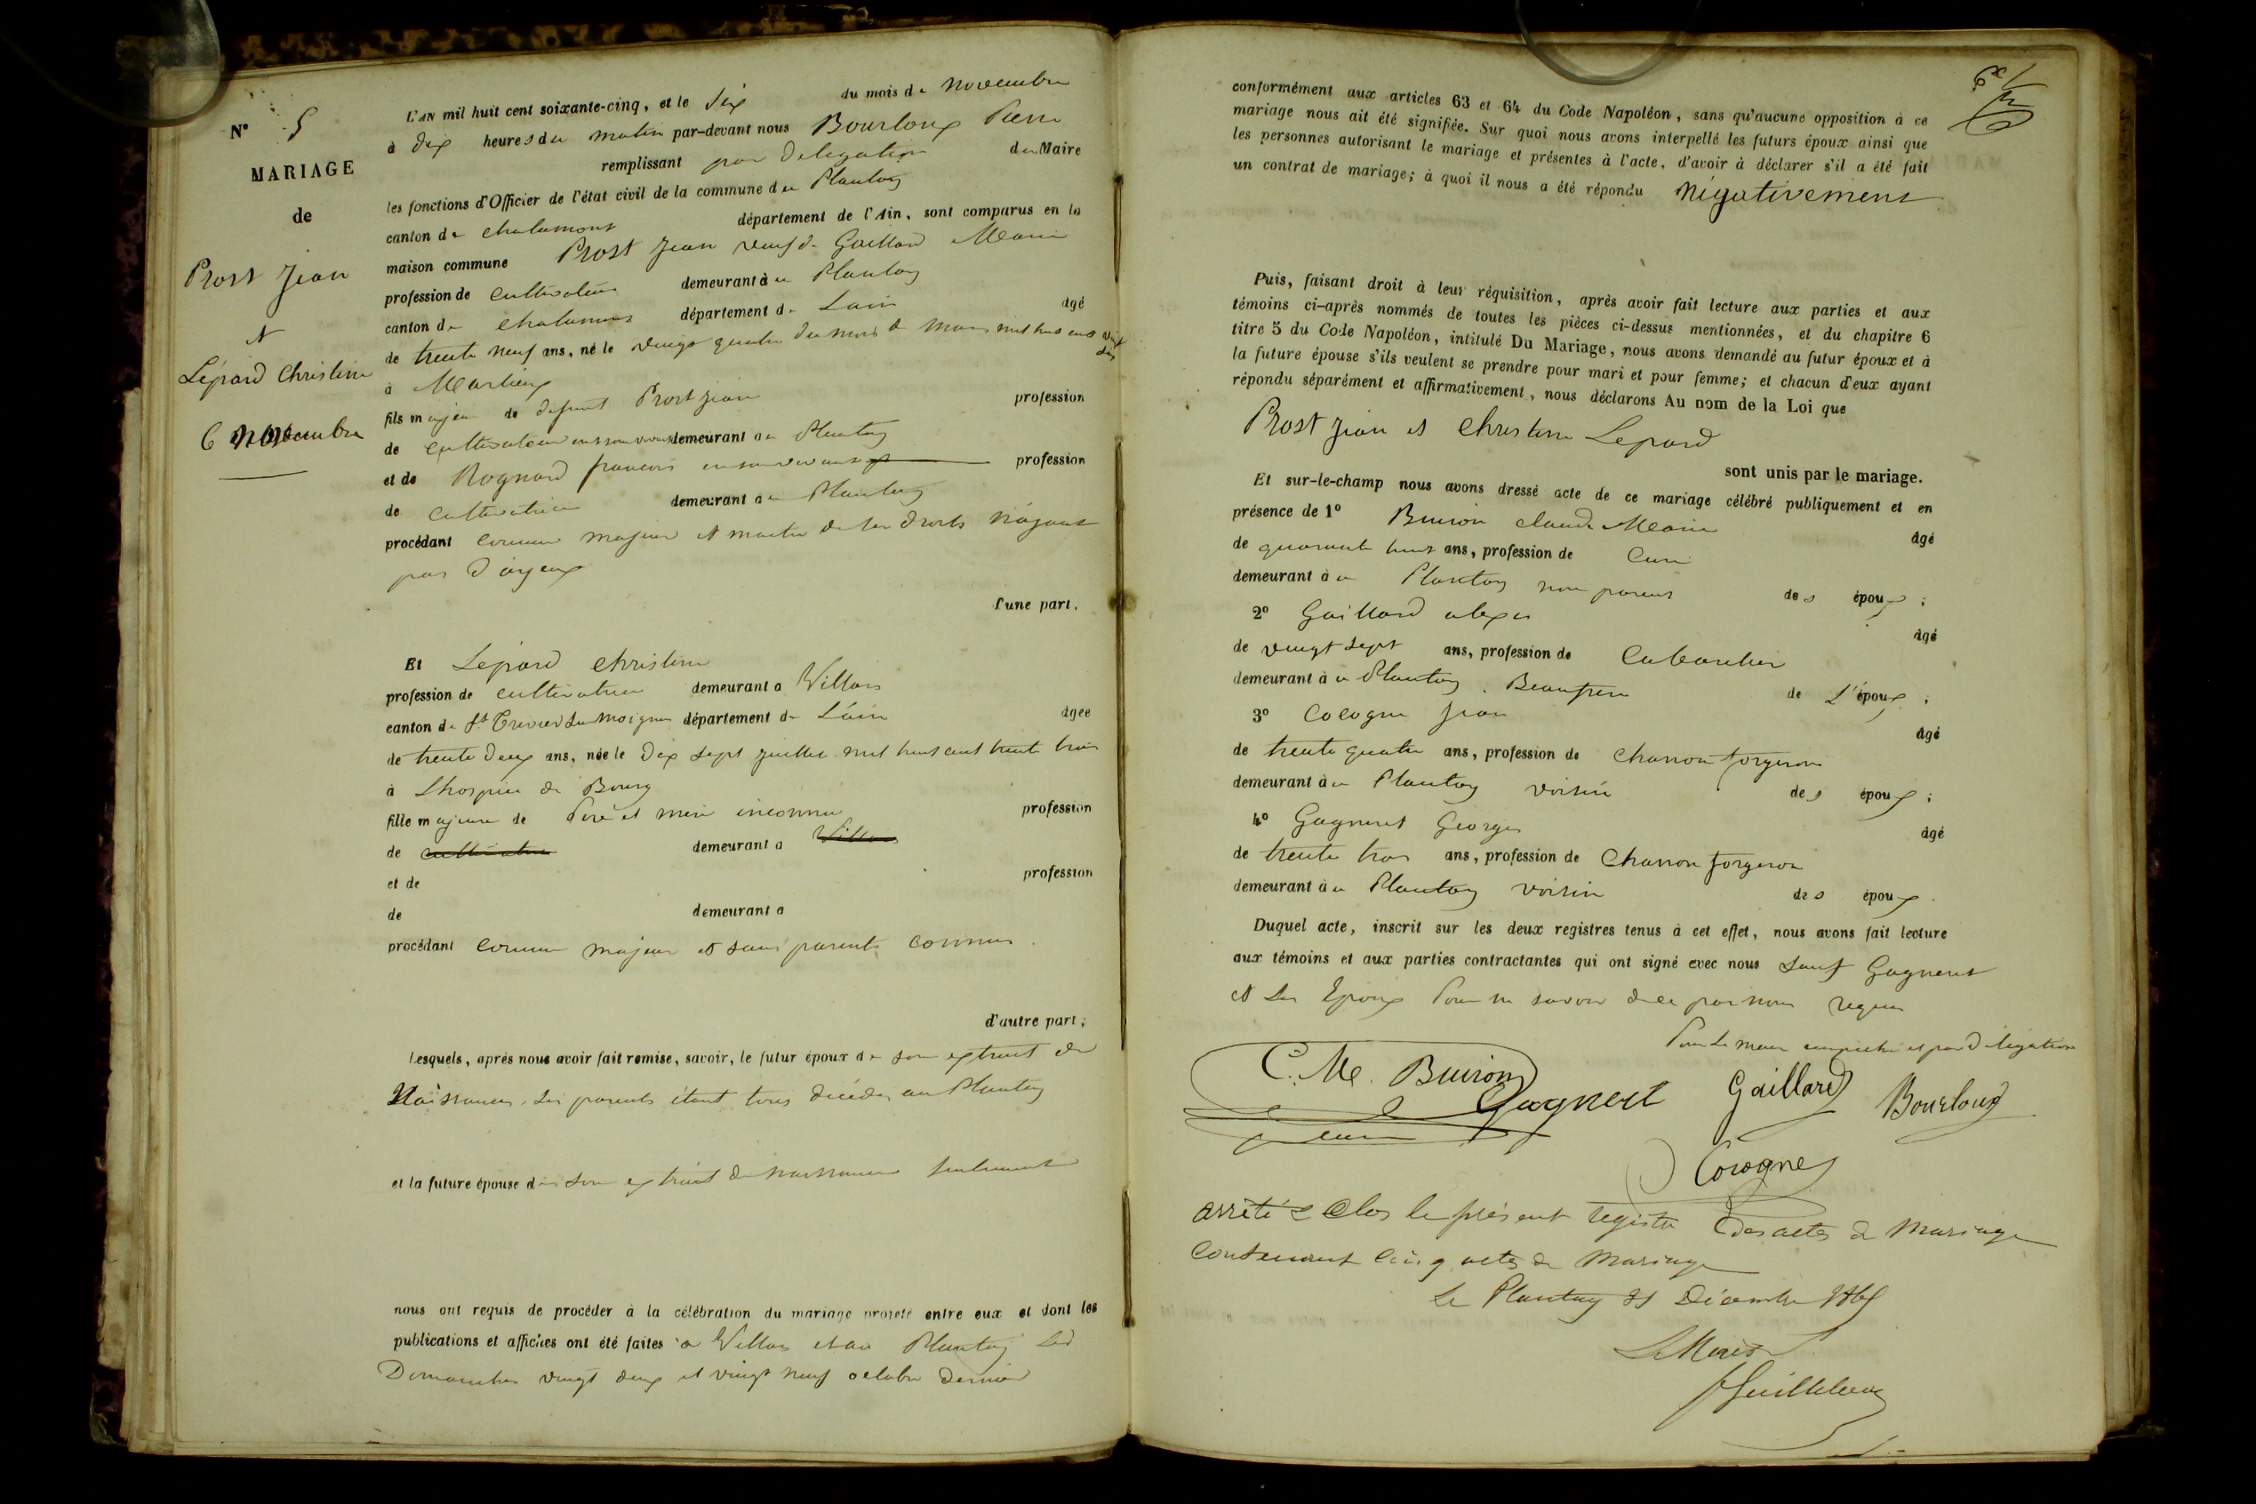 N° 5
MARIAGE
de
Prost Jean
et
Lépard Christine
6 Novembre
L'AN mil huit cent soixante-cinq, et le six du mois de novembre
à dix heures du matin par-devant nous Bourloux Pierre
remplissant par délégation du Maire
les fonctions d'Officier de l'état civil de la commune du Plantay
canton de chalamont département de l'Ain, sont comparus en la
maison commune Prost Jean veuf de Gaillard Marie
profession de cultivateur demeurant à au Plantay
canton de chalamont département de Lain âgé
de trente neuf ans, né le vingt quatre du mois de Mars mil huit cent vingt six
à Marlieux
fils majeur de défunt Prost Jean profession
de cultivateur en son vivant demeurant à au Plantay
et de Rognard francoise en son vivant profession
de cultivatrice demeurant à au Plantay
procédant comme majeur et maitre de ses droits n'ayant
pas d'ayeux
d'une part.
Et Lépard christine
profession de cultivatrice demeurant a Villars
canton de St Trivier Sur Moignan département de L'ain âgée
de trente deux ans, née le dix sept juillet mil huit cent trente trois
à L'hospice de Bourg
fille majeure de Père et mère inconnu profession
de cultivatrice demeurant a Villars
et de profession
de demeurant a
procédant comme majeur et sans parents connus.
d'autre part;
Lesquels, après nous avoir fait remise, savoir, le futur époux de son extrait de
Naissance, Ses parents étant tous décédés au Plantay
et la future épouse de son extrait de naissance seulement
nous ont requis de procéder à la célébration du mariage projeté entre eux et dont les
publications et affiches ont été faites à Villars et au Plantay les
Dimanches vingt deux et vingt neuf octobre dernier
conformément aux articles 63 et 64 du Code Napoléon, sans qu'aucune opposition à ce
mariage nous ait été signifiée. Sur quoi nous avons interpellé les futurs époux ainsi que
les personnes autorisant le mariage et présentes à l'acte, d'avoir à déclarer s'il a été fait
un contrat de mariage; à quoi il nous a été répondu négativement
Puis, faisant droit à leur réquisition, après avoir fait lecture aux parties et aux
témoins ci-après nommés de toutes les pièces ci-dessus mentionnées, et du chapitre 6
titre 5 du Code Napoléon, intitulé Du Mariage, nous avons demandé au futur époux et à
la future épouse s'ils veulent se prendre pour mari et pour femme; et chacun d'eux ayant
répondu séparément et affirmativement, nous déclarons Au nom de la Loi que
Prost Jean et Christine Lepard
sont unis par le mariage.
Et sur-le-champ nous avons dressé acte de ce mariage célébré publiquement et en
présence de 1° Buiron claude Marie âgé
de quarante huit ans, profession de Curé
demeurant à au Plantay non parent des époux;
2° Gaillard alexis âgé
de vingt sept ans, profession de Cabaretier
demeurant à au Plantay. Beaufrère de L'époux;
3° Cocogne Jean âgé
de trente quatre ans, profession de charron forgeron
demeurant à au Plantay voisin des époux;
4° Gagneret Georges âgé
de trente trois ans, profession de charron forgeron
demeurant à au Plantay voisin des époux.
Duquel acte, inscrit sur les deux registres tenus à cet effet, nous avons fait lecture
aux témoins et aux parties contractantes qui ont signé avec nous sauf Gagneret
et les Epoux Pour ne savoir de ce par nous requis
Pour Le maire empeché et par délégation
C. Me. Buiron
Gagneret Gaillard Bourloux
curé
Cocogne
arrêté & Clos le présent registre des actes de Mariage
Contenant Cinq actes de Mariage
Le Plantay 31 Décembre 1865
Le Maire